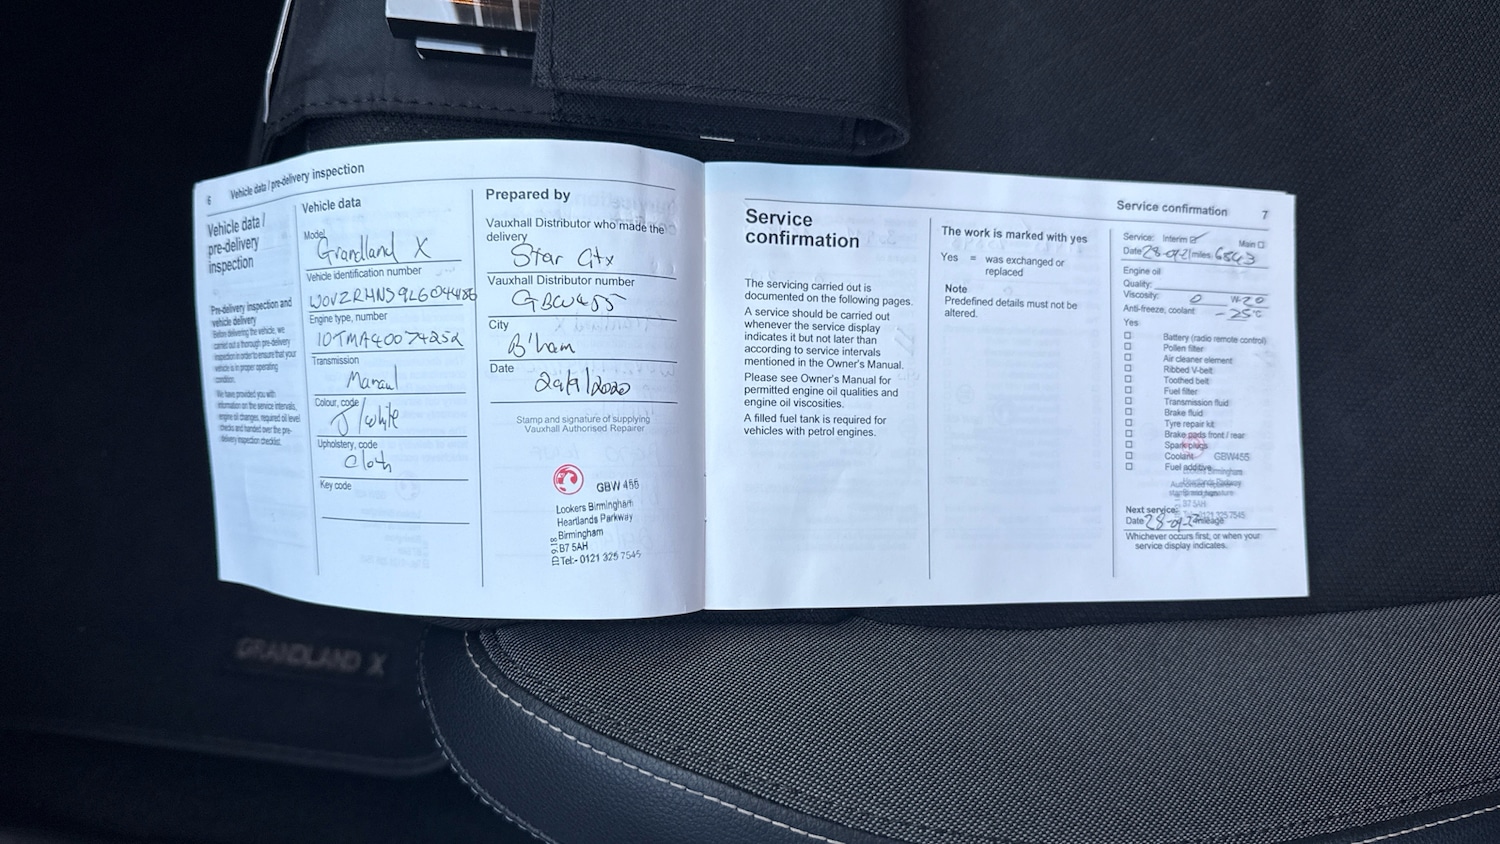 6 Vehicle data / pre-delivery inspection
Vehicle data /
pre-delivery
inspection
Pre-delivery inspection and
vehicle delivery
Before delivering the vehicle, we
carried out a thorough pre-delivery
inspection in order to ensure that your
vehicle is in proper operating
condition.
We have provided you with
information on the service intervals,
engine oil changes, required oil level
checks and handed over the pre-
delivery inspection checklist.
Vehicle data
Model
Grandland X
Vehicle identification number
Engine type, number
Transmission
Manual
Colour, code
J/white
Upholstery, code
Cloth
Key code
Prepared by
Vauxhall Distributor who made the
delivery
Star Gtx
Vauxhall Distributor number
GBW455
City
B'ham
Date
29/9/2020
Stamp and signature of supplying
Vauxhall Authorised Repairer
GBW 455
Lookers Birmingham
Heartlands Parkway
Birmingham
B7 5AH
Tel:- 0121 325 7545
ID 9.18
Service
confirmation
The servicing carried out is
documented on the following pages.
A service should be carried out
whenever the service display
indicates it but not later than
according to service intervals
mentioned in the Owner's Manual.
Please see Owner's Manual for
permitted engine oil qualities and
engine oil viscosities.
A filled fuel tank is required for
vehicles with petrol engines.
The work is marked with yes
Yes = was exchanged or
replaced
Note
Predefined details must not be
altered.
Service confirmation 7
Service: Interim Main
Date 28-09-21 miles 6543
Engine oil
Quality:
Viscosity: 0 W-20
Anti-freeze, coolant -25°C
Yes
Battery (radio remote control)
Pollen filter
Air cleaner element
Ribbed V-belt
Toothed belt
Fuel filter
Transmission fluid
Brake fluid
Tyre repair kit
Brake pads front / rear
Spark plugs
Coolant GBW455
Fuel additive
Birmingham
Heartlands Parkway
B7 5AH
0121 325 7545
Next service:
Date 28-09-22 mileage
Whichever occurs first, or when your
service display indicates.
GRANDLAND X